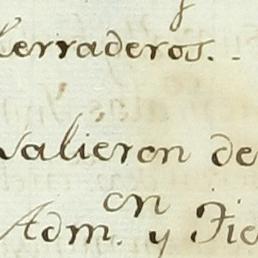 Herraderos.
Salieron de
on
Adm. y Fie